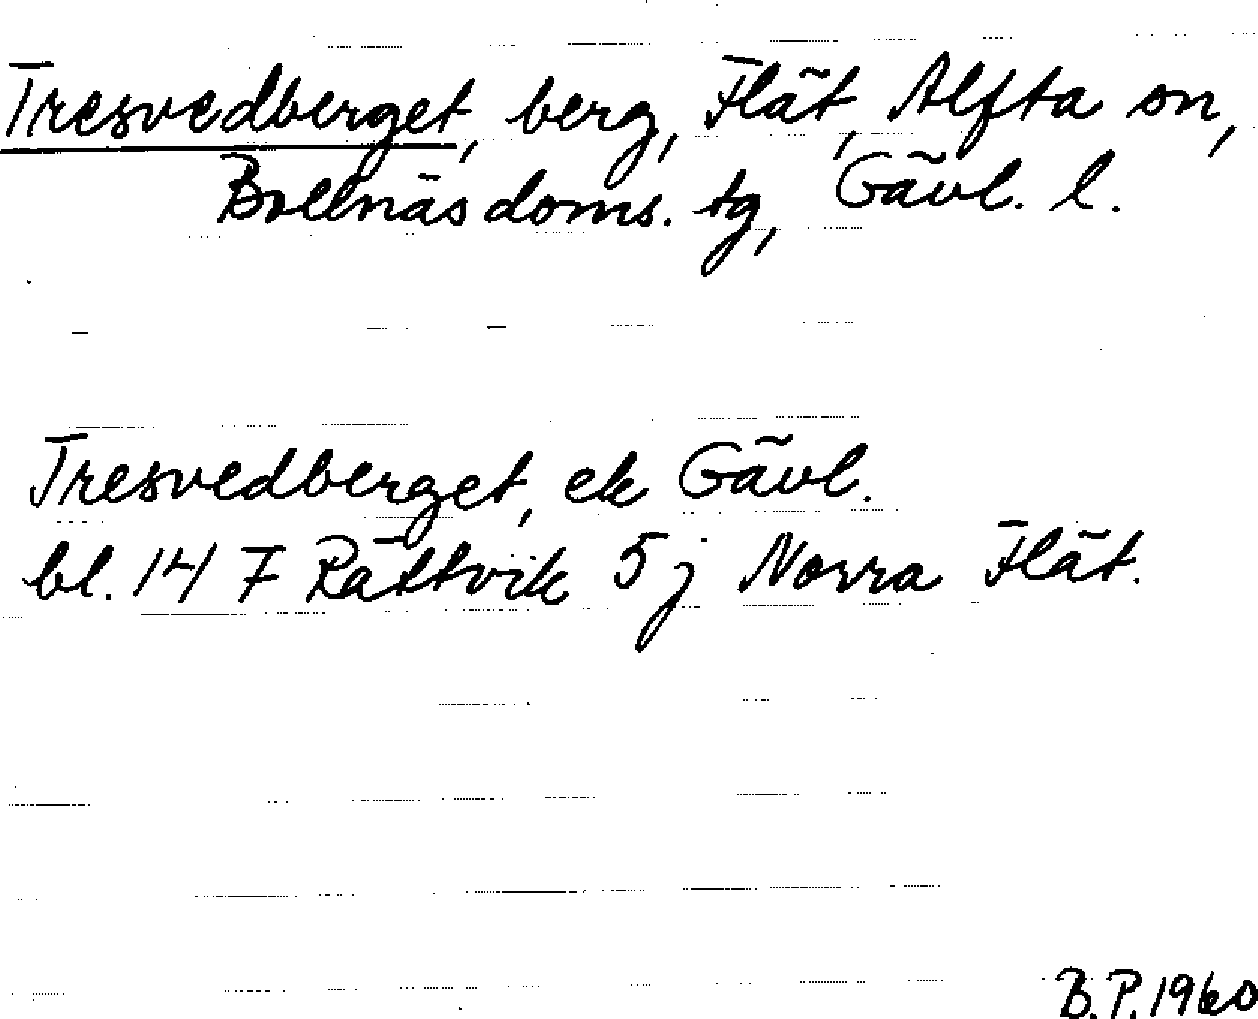 Tresvedberget, berg, Flät, Alfta sn,
Bollnäs doms. tg, Gävl. l.
Tresvedberget, ek Gävl.
bl. 14 F Rättvik 5 j Norra Flät.
B.P. 1960